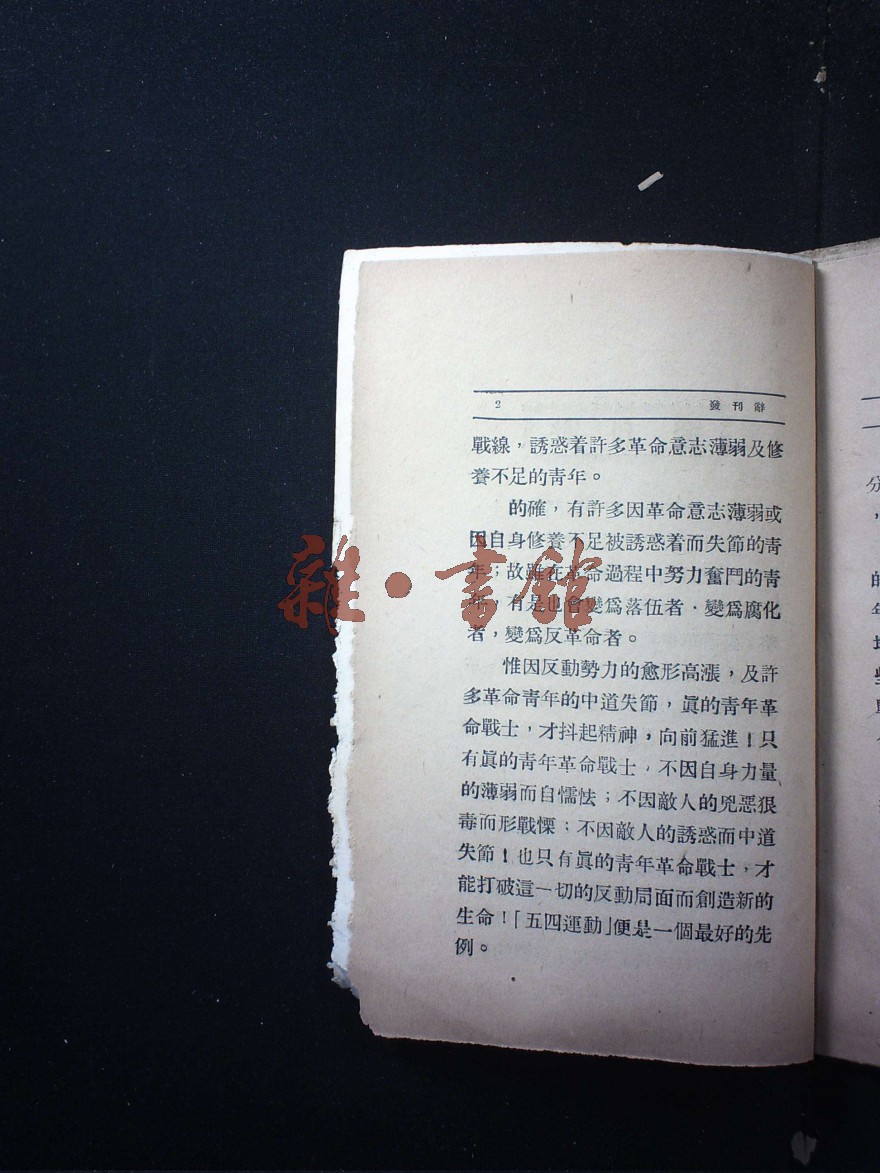 2 發刊辭
戰線，誘惑着許多革命意志薄弱及修
養不足的靑年。
的確，有許多因革命意志薄弱或
因自身修養不足被誘惑着而失節的靑
年；故雖在革命過程中努力奮鬥的靑
年，有是也會變爲落伍者．變爲腐化
者，變爲反革命者。
惟因反動勢力的愈形高漲，及許
多革命靑年的中道失節，眞的靑年革
命戰士，才抖起精神，向前猛進！只
有眞的靑年革命戰士，不因自身力量
的薄弱而自懦怯；不因敵人的兇惡狠
毒而形戰慄；不因敵人的誘惑而中道
失節！也只有眞的靑年革命戰士，才
能打破這一切的反動局面而創造新的
生命！「五四運動」便是一個最好的先
例。
雜·書館
分
，
的
年